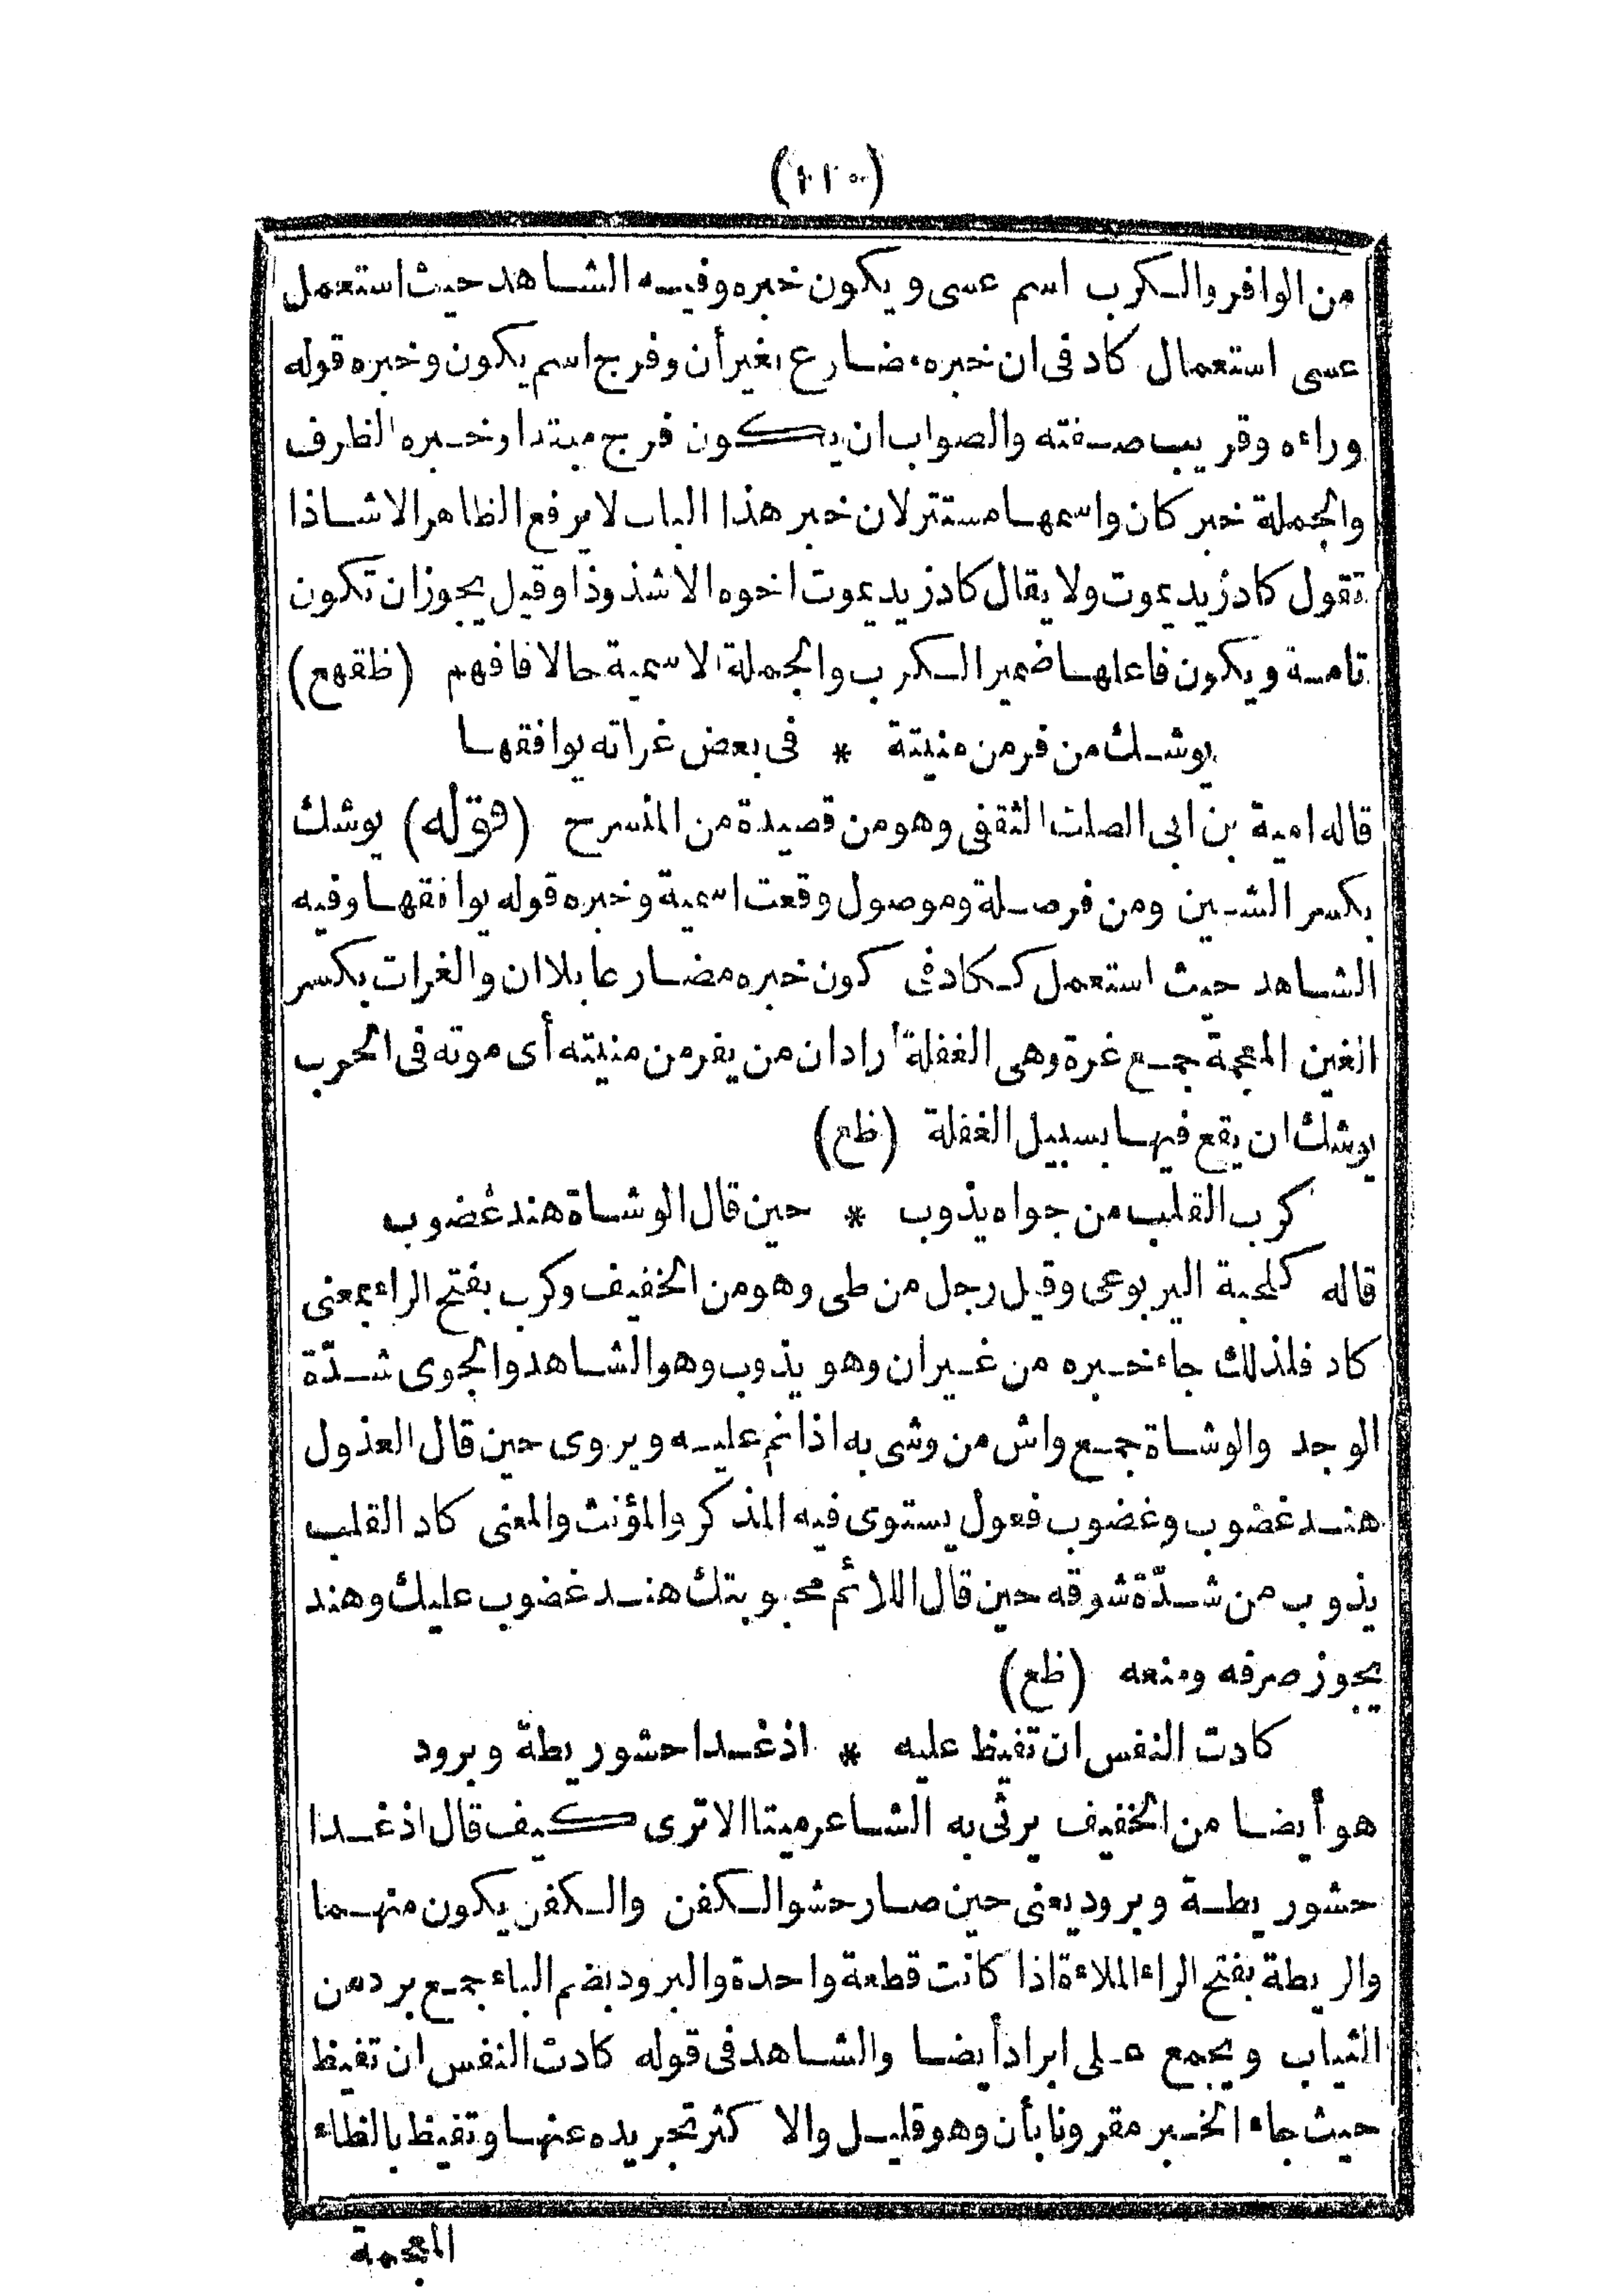 (١١٠)
من الوافر والكرب اسم عسى و يكون خبره وفيه الشاهد حيث استعمل
عسى استعمال كاد فى ان خبره مضارع بغير أن وفرج اسم يكون وخبره قوله
وراءه وقريب صفته والصواب ان يكون فرج مبتدا وخبره الظرف
والجملة خبر كان واسمها مستتر لان خبر هذا الباب لا يرفع الظاهر الا شاذا
تقول كاد زيد يموت ولا يقال كاد زيد يموت اخوه الا شذوذا وقيل يجوز ان تكون
تامة و يكون فاعلها ضمير الكرب والجملة الاسمية حالا فافهم (ظقهع)
يوشك من فر من منيتة * فى بعض غراته يوافقها
قاله امية بن ابى الصلت الثقفى وهو من قصيدة من المنسرح (قوله) يوشك
بكسر الشين ومن فر صلة وموصول وقعت اسمية وخبره قوله يوافقها وفيه
الشاهد حيث استعمل ككاد فى كون خبره مضارعا بلا ان والغرات بكسر
الغين المعجمة جمع غرة وهى الغفلة أراد ان من يفر من منيته أى موته فى الحرب
يوشك ان يقع فيها بسبيل الغفلة (ظع)
كرب القلب من جواه يذوب * حين قال الوشاة هند غضوب
قاله كلحبة اليربوعى وقيل رجل من طى وهو من الخفيف وكرب بفتح الراء بمعنى
كاد فلذلك جاء خبره من غير ان وهو يذوب وهو الشاهد والجوى شدّة
الوجد والوشاة جمع واش من وشى به اذا نم عليه و يروى حين قال العذول
هند غضوب وغضوب فعول يستوى فيه المذكر والمؤنث والمعنى كاد القلب
يذوب من شدّة شوقه حين قال اللائم محبوبتك هند غضوب عليك وهند
يجوز صرفه ومنعه (ظع)
كادت النفس ان تفيظ عليه * اذ غدا حشو ريطة و برود
هو أيضا من الخفيف يرثى به الشاعر ميتا الا ترى كيف قال اذ غدا
حشو ريطة و برود يعنى حين صار حشو الكفن والكفن يكون منهما
والريطة بفتح الراء الملاءة اذا كانت قطعة واحدة والبرود بضم الباء جمع برد من
الثياب و يجمع على ابراد أيضا والشاهد فى قوله كادت النفس ان تفيظ
حيث جاء الخبر مقرونا بأن وهو قليل والا كثر تجريده عنها وتفيظ بالظاء
المعجمة